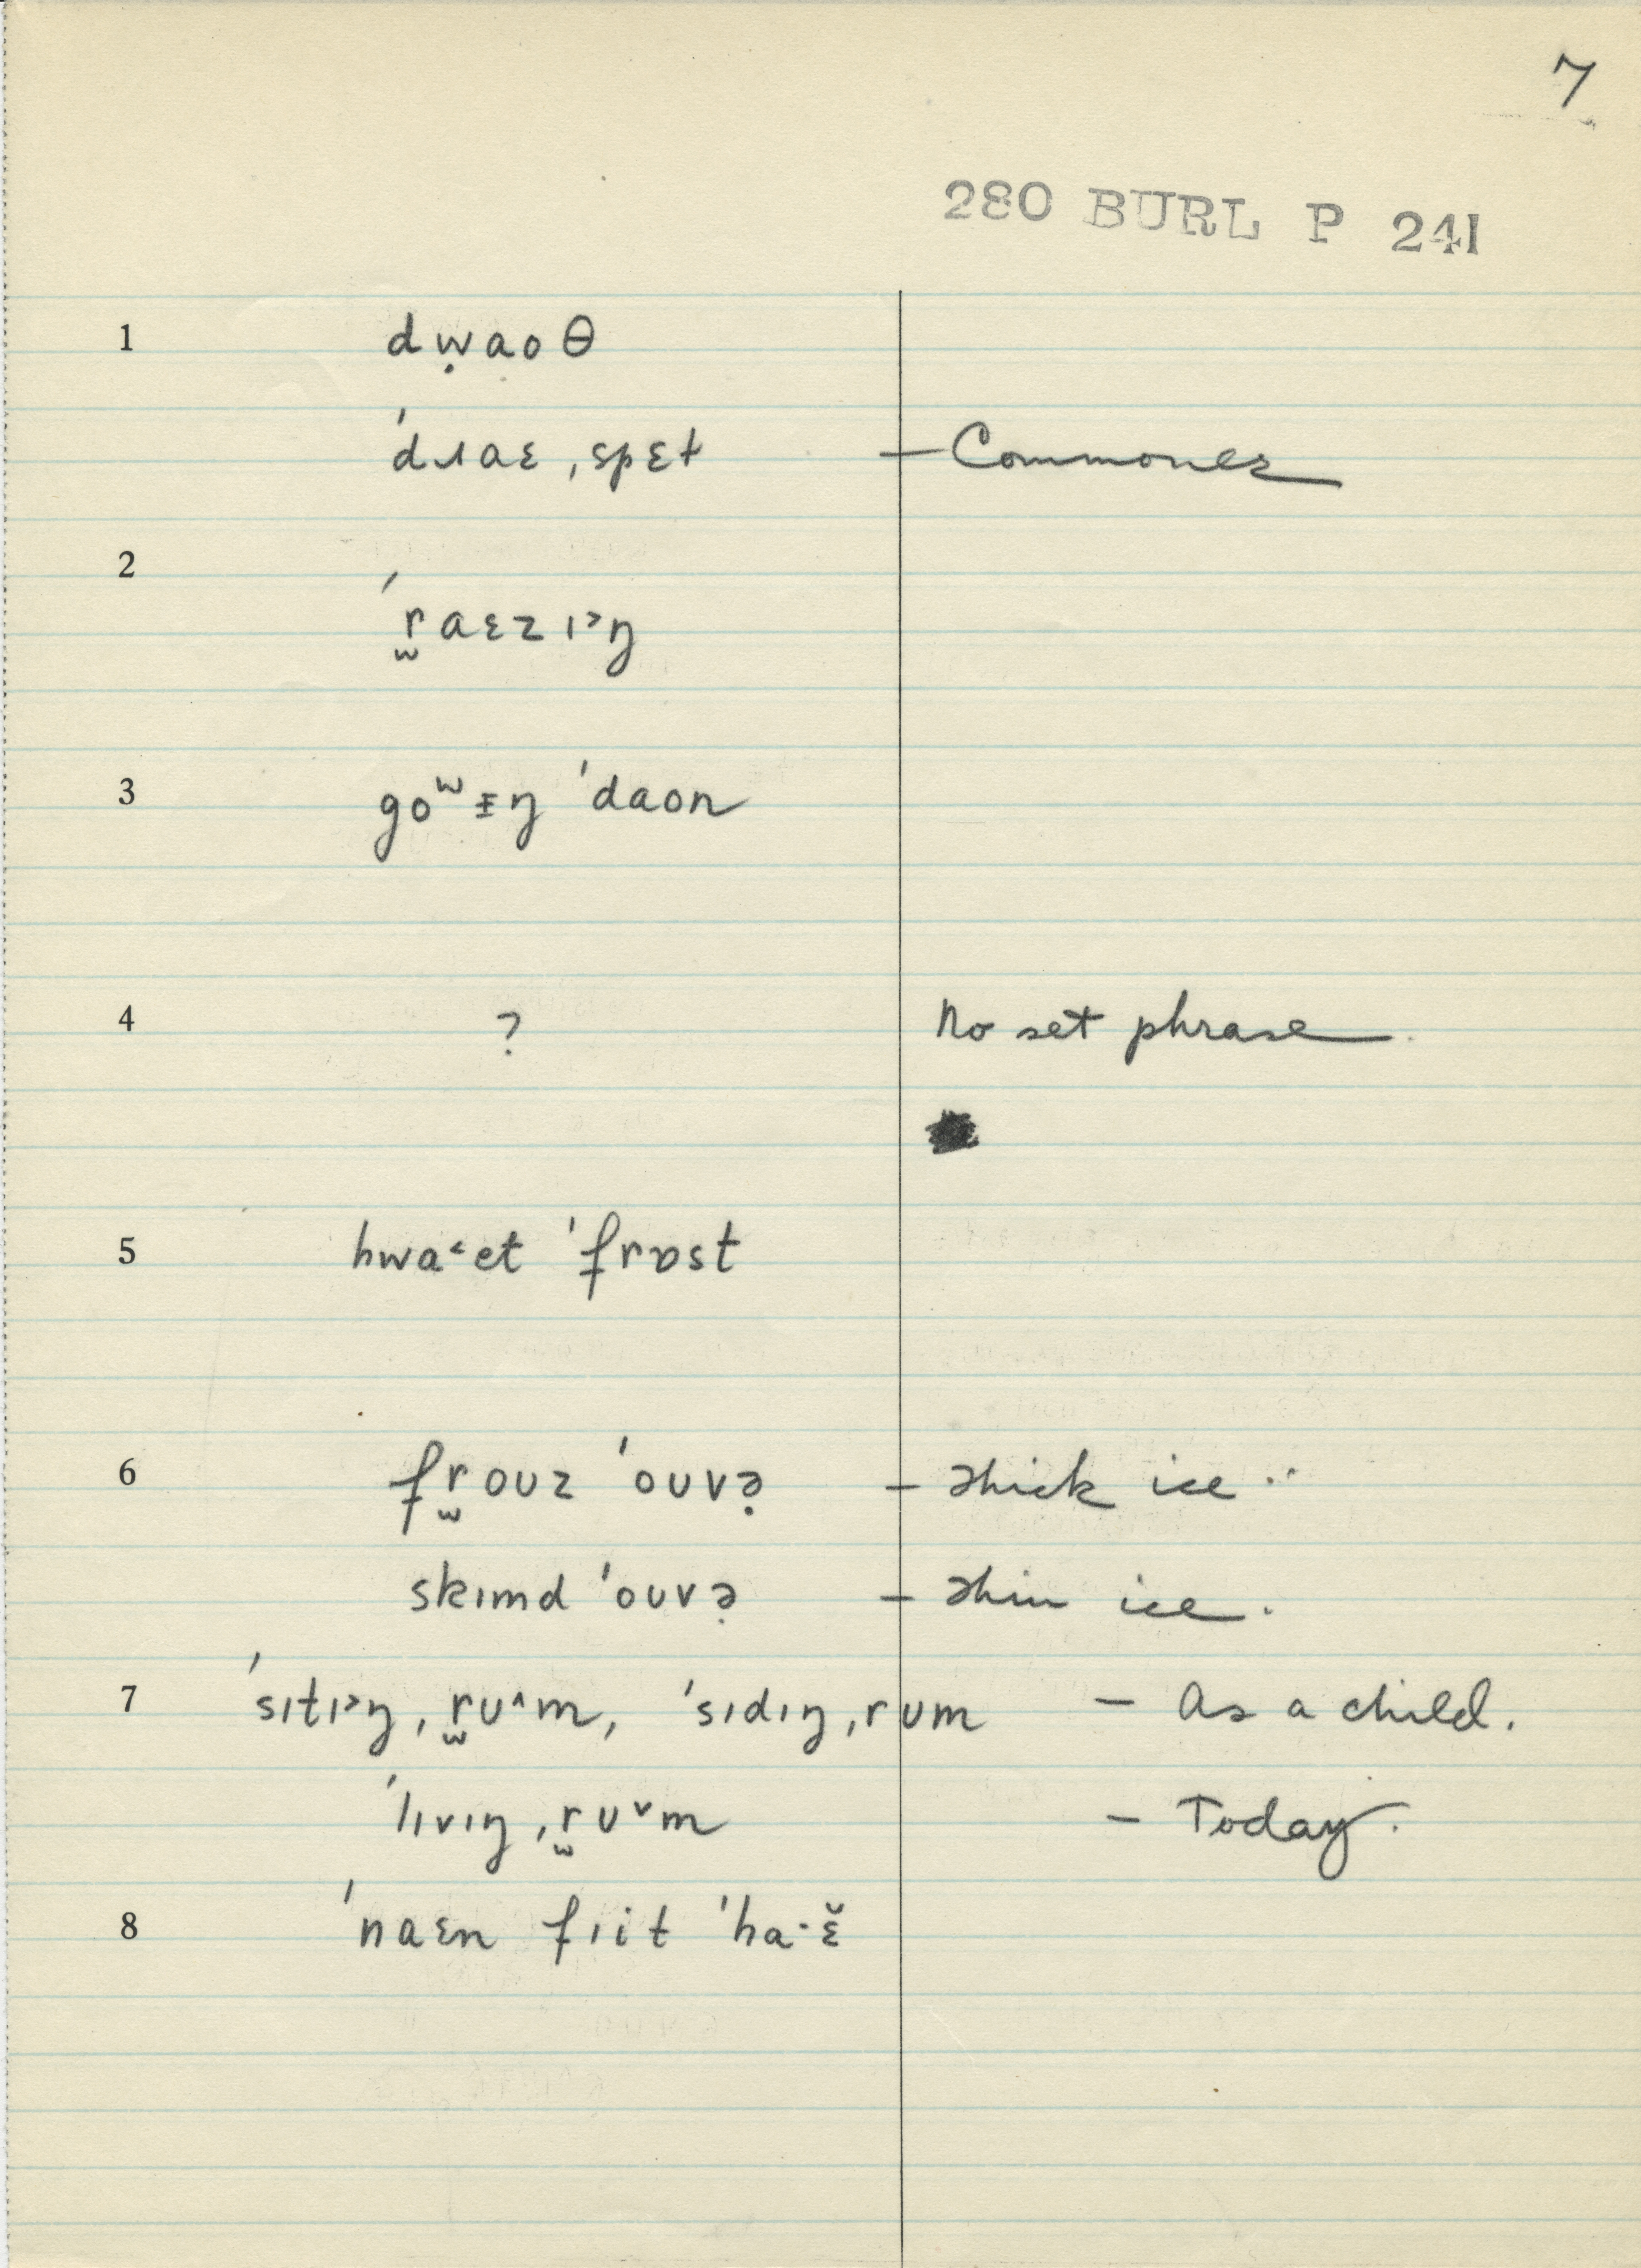 7
280 BURL P 241
1 dẉaoθ
ˈdɹaɛ ˌspɛt – Commoner
2
ˈr̫aɛzɪ˃ŋ
3 goʷɪ̵ŋ ˈdaon
4 ? No set phrase.
5 hwa˂et ˈfrɒst
6 fr̫oʊz ˈoʊvə̣ – thick ice
skɪmd ˈoʊvə̣ – thin ice.
7 ˈsɪtɪ˃ŋ ˌr̫ʊ˄m, ˈsɪdɪŋ ˌrʊm – As a child.
ˈlɪvɪŋ ˌr̫ʊ˅m – Today.
8 ˈnaɛn fɪit ˈha·ɛ̆